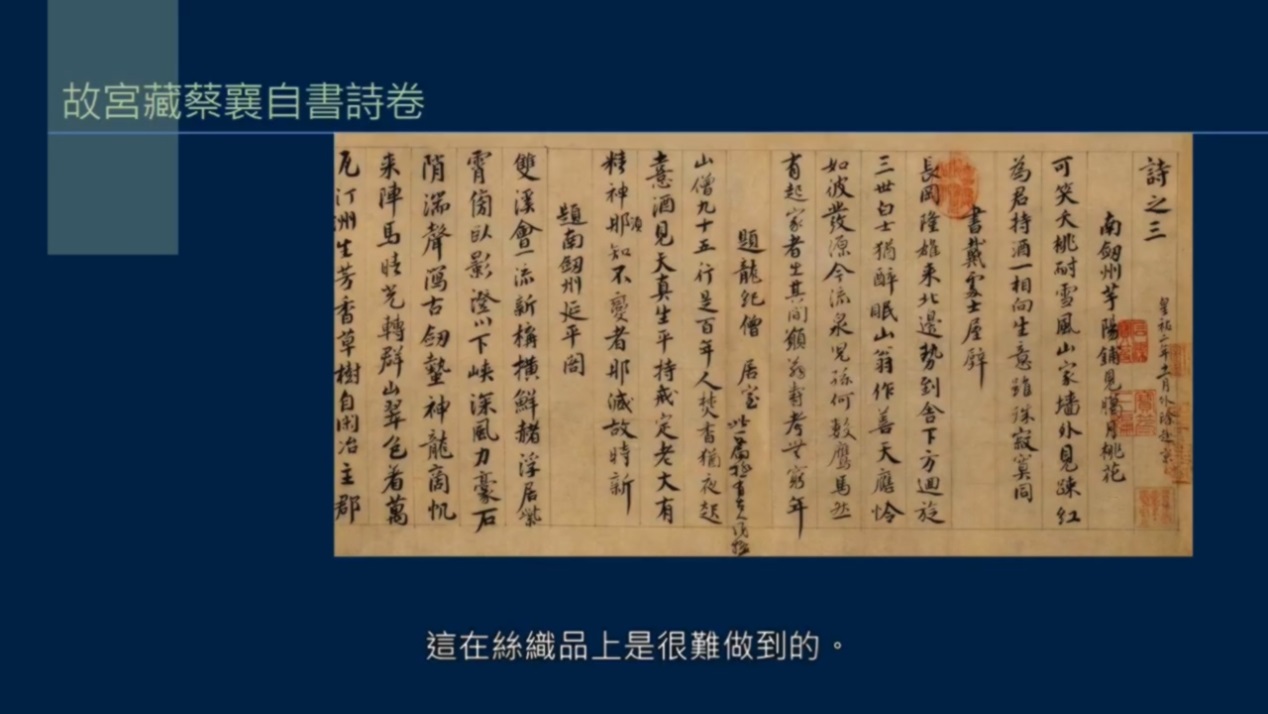 故宮藏蔡襄自書詩卷
詩之三
皇祐二年十一月外除赴京
南劔州芋陽鋪見臘月桃花
可笑夭桃耐雪風山家墻外見踈紅
為君持酒一相向生意雖殊寂寞同
書戴處士屋壁
長岡隆雄来北邊勢到舎下方迴旋
三世白士猶醉眠山翁作善天應憐
如彼發源今流泉兒孫何數鷹馬然
有起家者出其間願翁壽考無窮年
題龍紀僧居室
山僧九十五行是百年人焚香猶夜起
憙酒見天真生平持戒定老大有
精神耶知不變者耶減故時新
須
題南劔州延平閣
雙溪會一流新構橫鮮赭浮居紫
霄傍臥影澄川下峽深風力豪石
陗湍聲瀉古劔蟄神龍商帆
来陣馬晴光轉群山翠色着萬
瓦汀洲生芳香草樹自閑冶主郡
這在絲織品上是很難做到的。